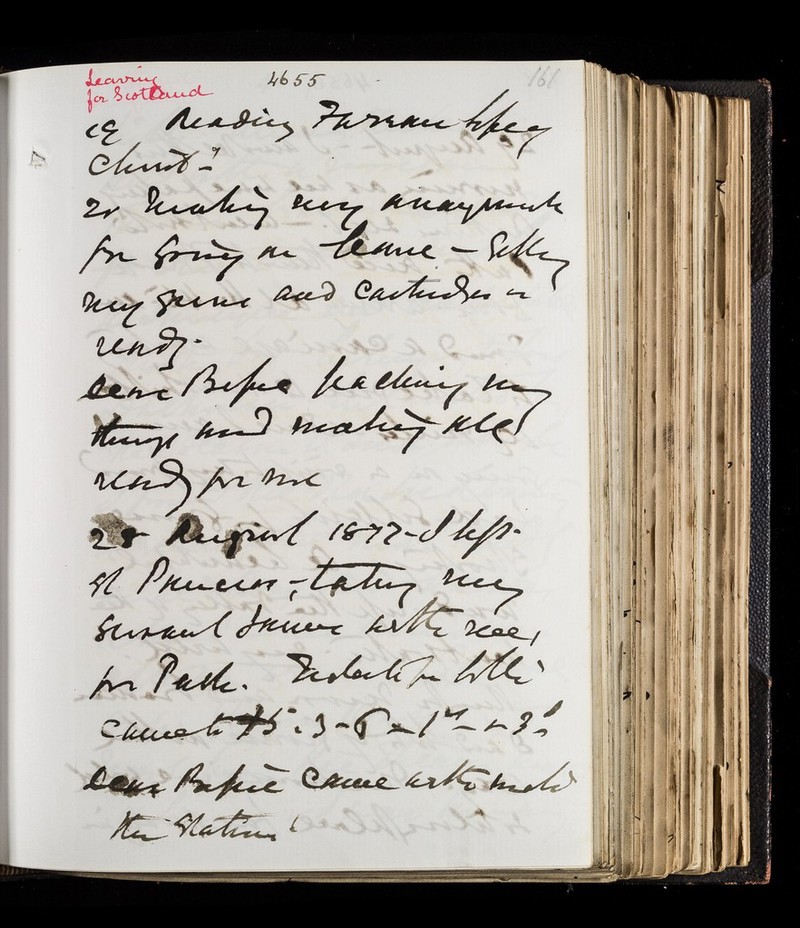 Leaving
for Scotland
4655
161
Reading Farrar's life of
Christ"-
& Making my arrangements
for going on leave - Getting
my guns and cartridges
ready.
Dear Bessie packing my
things and making all
ready for me
28 August 1877 - I left
St Pancras, - taking my
servant James with me,
for Perth. Tickets for both
came to £5.3-6 - 1st - & 3d
Dear Bessie came with me to
the Station!